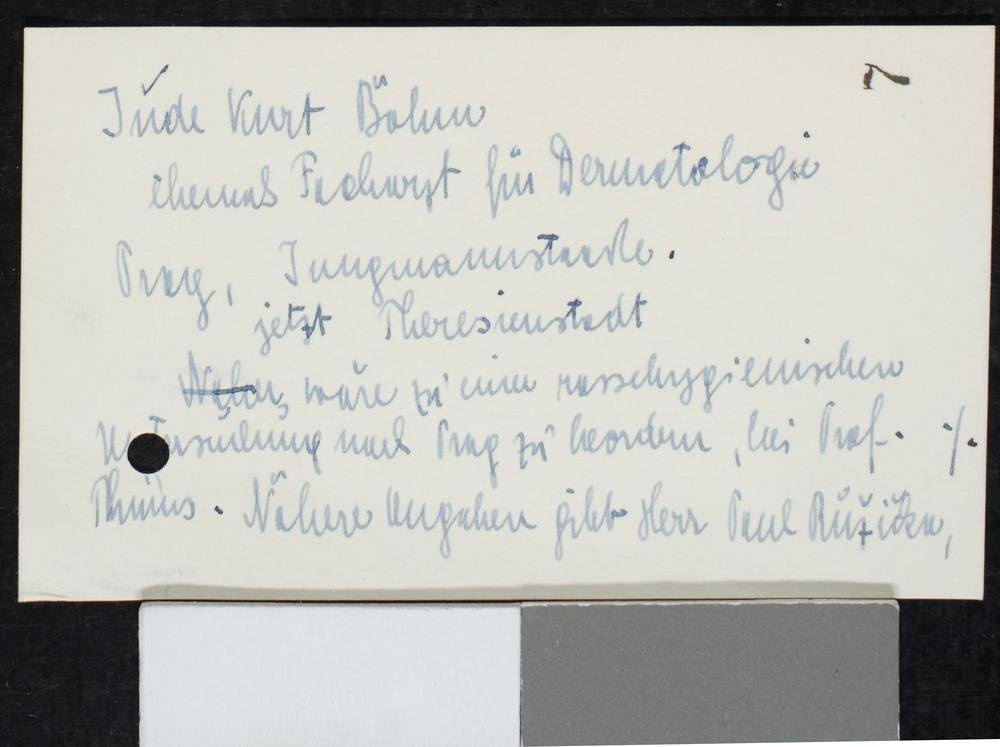 Jude Kurt Böhm
ehemals Facharzt für Dermatologie
Prag, Jungmannstraße.
jetzt Theresienstadt
wäre zu einer rassehygienischen
Untersuchung nach Prag zu beordern, bei Prof. ./.
Thums. Nähere Angaben gibt Herr Paul Růžička,